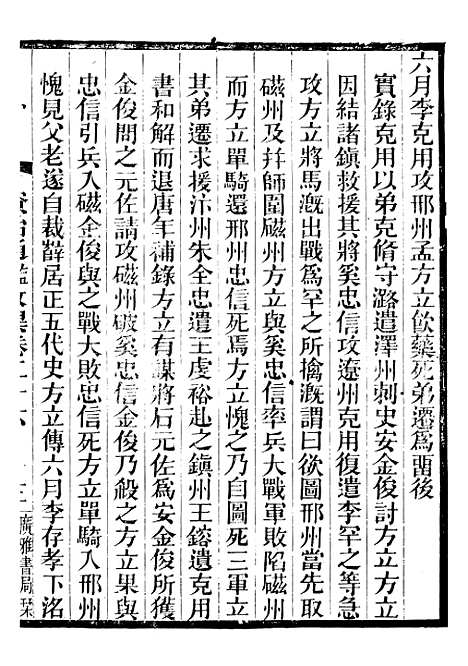 六月李克用攻邢州孟方立飮藥死弟遷爲畱後
實錄克用以弟克脩守潞遣澤州刺史安金俊討方立方立
因結諸鎭救援其將奚忠信攻遼州克用復遣李罕之等急
攻方立將馬溉出戰爲罕之所擒溉謂曰欲圖邢州當先取
磁州及幷師圍磁州方立與忠信率兵大戰軍敗陷磁州
而方立單騎還邢州忠信死焉方立愧之乃自圖死三軍立
其弟遷求援汴州朱全忠遣王虔裕赴之鎭州王鎔遺克用
書和解而退唐年補錄方立有謀將石元佐爲安金俊所獲
金俊問之元佐請攻磁州破奚忠信金俊乃殺之方立果與
忠信引兵入磁金俊與之戰大敗忠信死方立單騎入邢州
愧見父老遂自裁薛居正五代史方立傳六月李存孝下洺
資治通鑑攷異卷二十六
廣雅書局栞